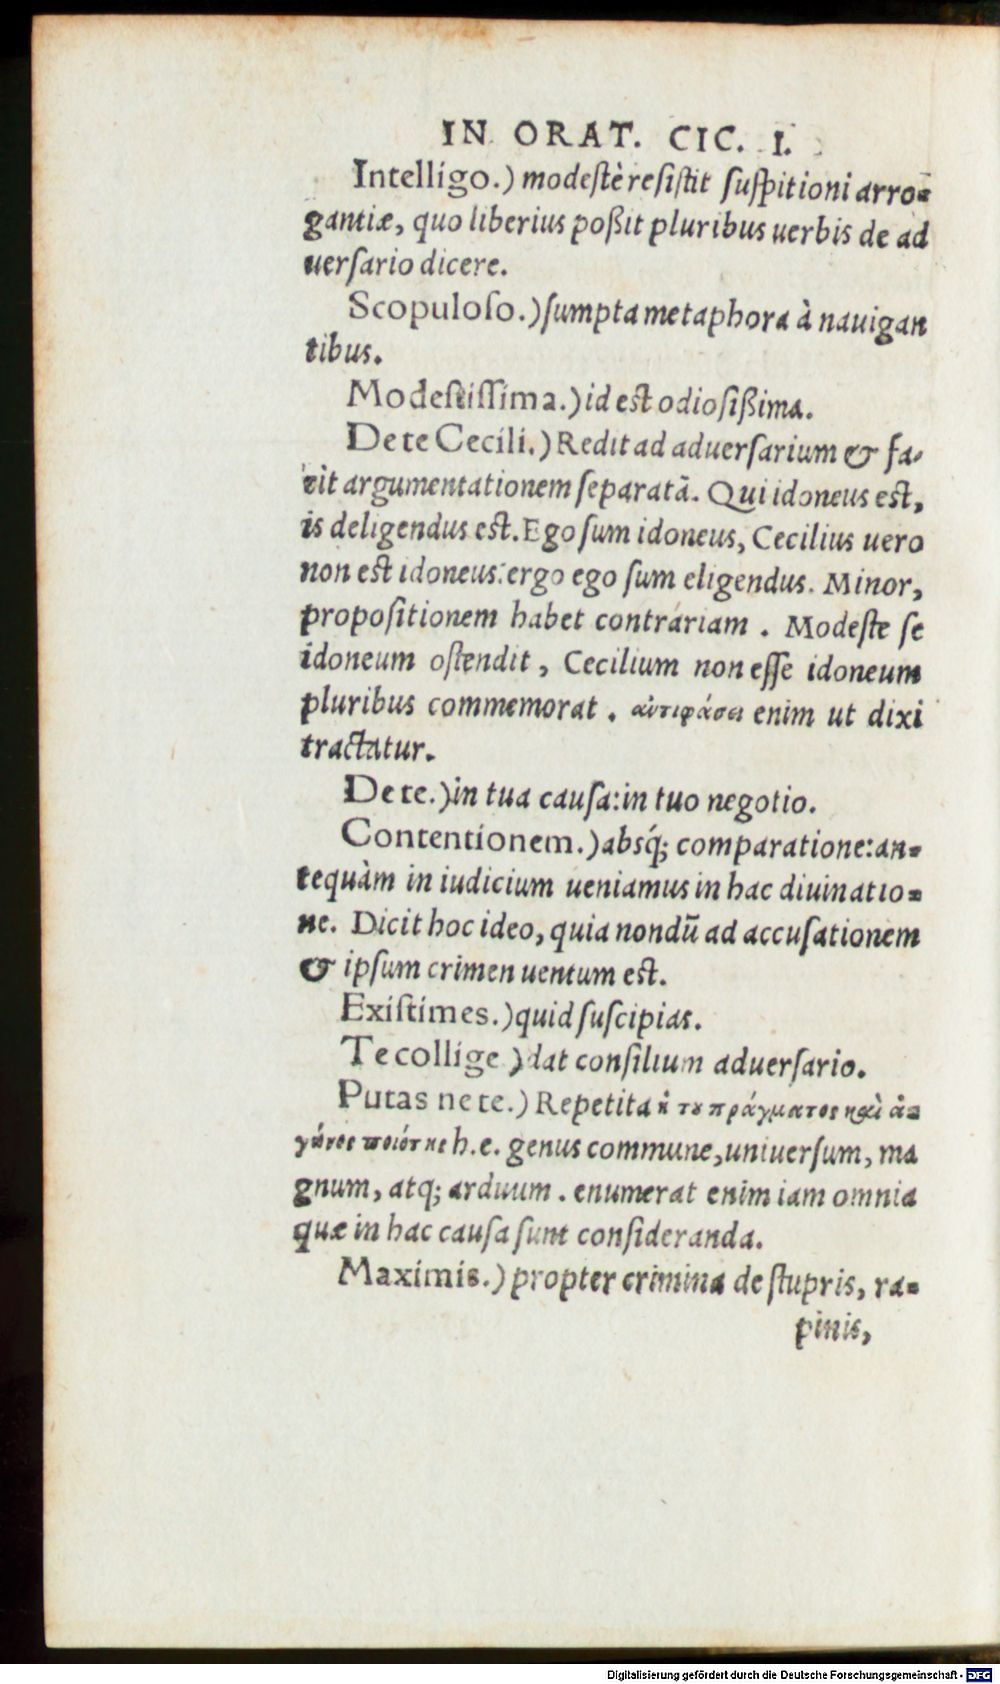 IN ORAT. CIC. I.
Intelligo.) modestè resistit suspitioni arro=
gantiæ, quo liberius poßit pluribus uerbis de ad
uersario dicere.
Scopuloso.) sumpta metaphora à nauigan
tibus.
Modestissima.) id est odiosißima.
De te Cecili.) Redit ad aduersarium & fa-
cit argumentationem separatā. Qui idoneus est,
is deligendus est. Ego sum idoneus, Cecilius uero
non est idoneus: ergo ego sum eligendus. Minor,
propositionem habet contrariam. Modeste se
idoneum ostendit, Cecilium non esse idoneum
pluribus commemorat. ἀντιφάσει enim ut dixi
tractatur.
De te.) in tua causa: in tuo negotio.
Contentionem.) absq́; comparatione: an=
tequàm in iudicium ueniamus in hac diuinatio=
ne. Dicit hoc ideo, quia nondū ad accusationem
& ipsum crimen uentum est.
Existimes.) quid suscipias.
Te collige) dat consilium aduersario.
Putas ne te.) Repetita ἡ τȣ πράγματος καὶ ἀ=
γῶνος ποιότης h.e. genus commune, uniuersum, ma
gnum, atq; arduum. enumerat enim iam omnia
quæ in hac causa sunt consideranda.
Maximis.) propter crimina de stupris, ra=
pinis,
Digitalisierung gefördert durch die Deutsche Forschungsgemeinschaft - DFG